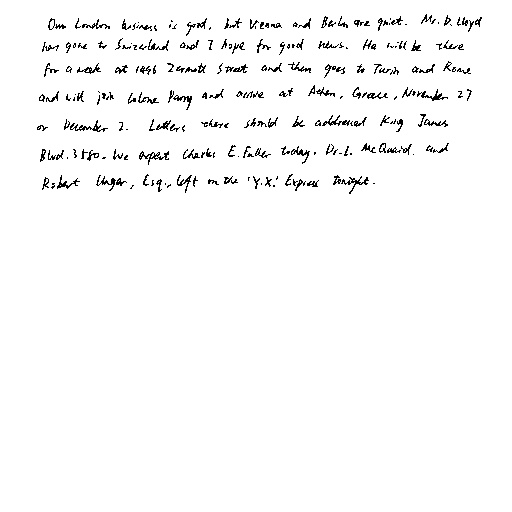 Our London business is good, but Vienna and Berlin are quiet. Mr. D. Lloyd
has gone to Switzerland and I hope for good news. He will be there
for a week at 1496 Zermott Street and then goes to Turin and Rome
and will join Colone Parry and arrive at Athen, Greece, November 27
or December 2. Letters there should be addressed King James
Blvd. 3580. We expect Charles E. Fuller today. Dr. L. McQuaid and
Robert Unger, Esq., left on the 'Y.X.' Express tonight.